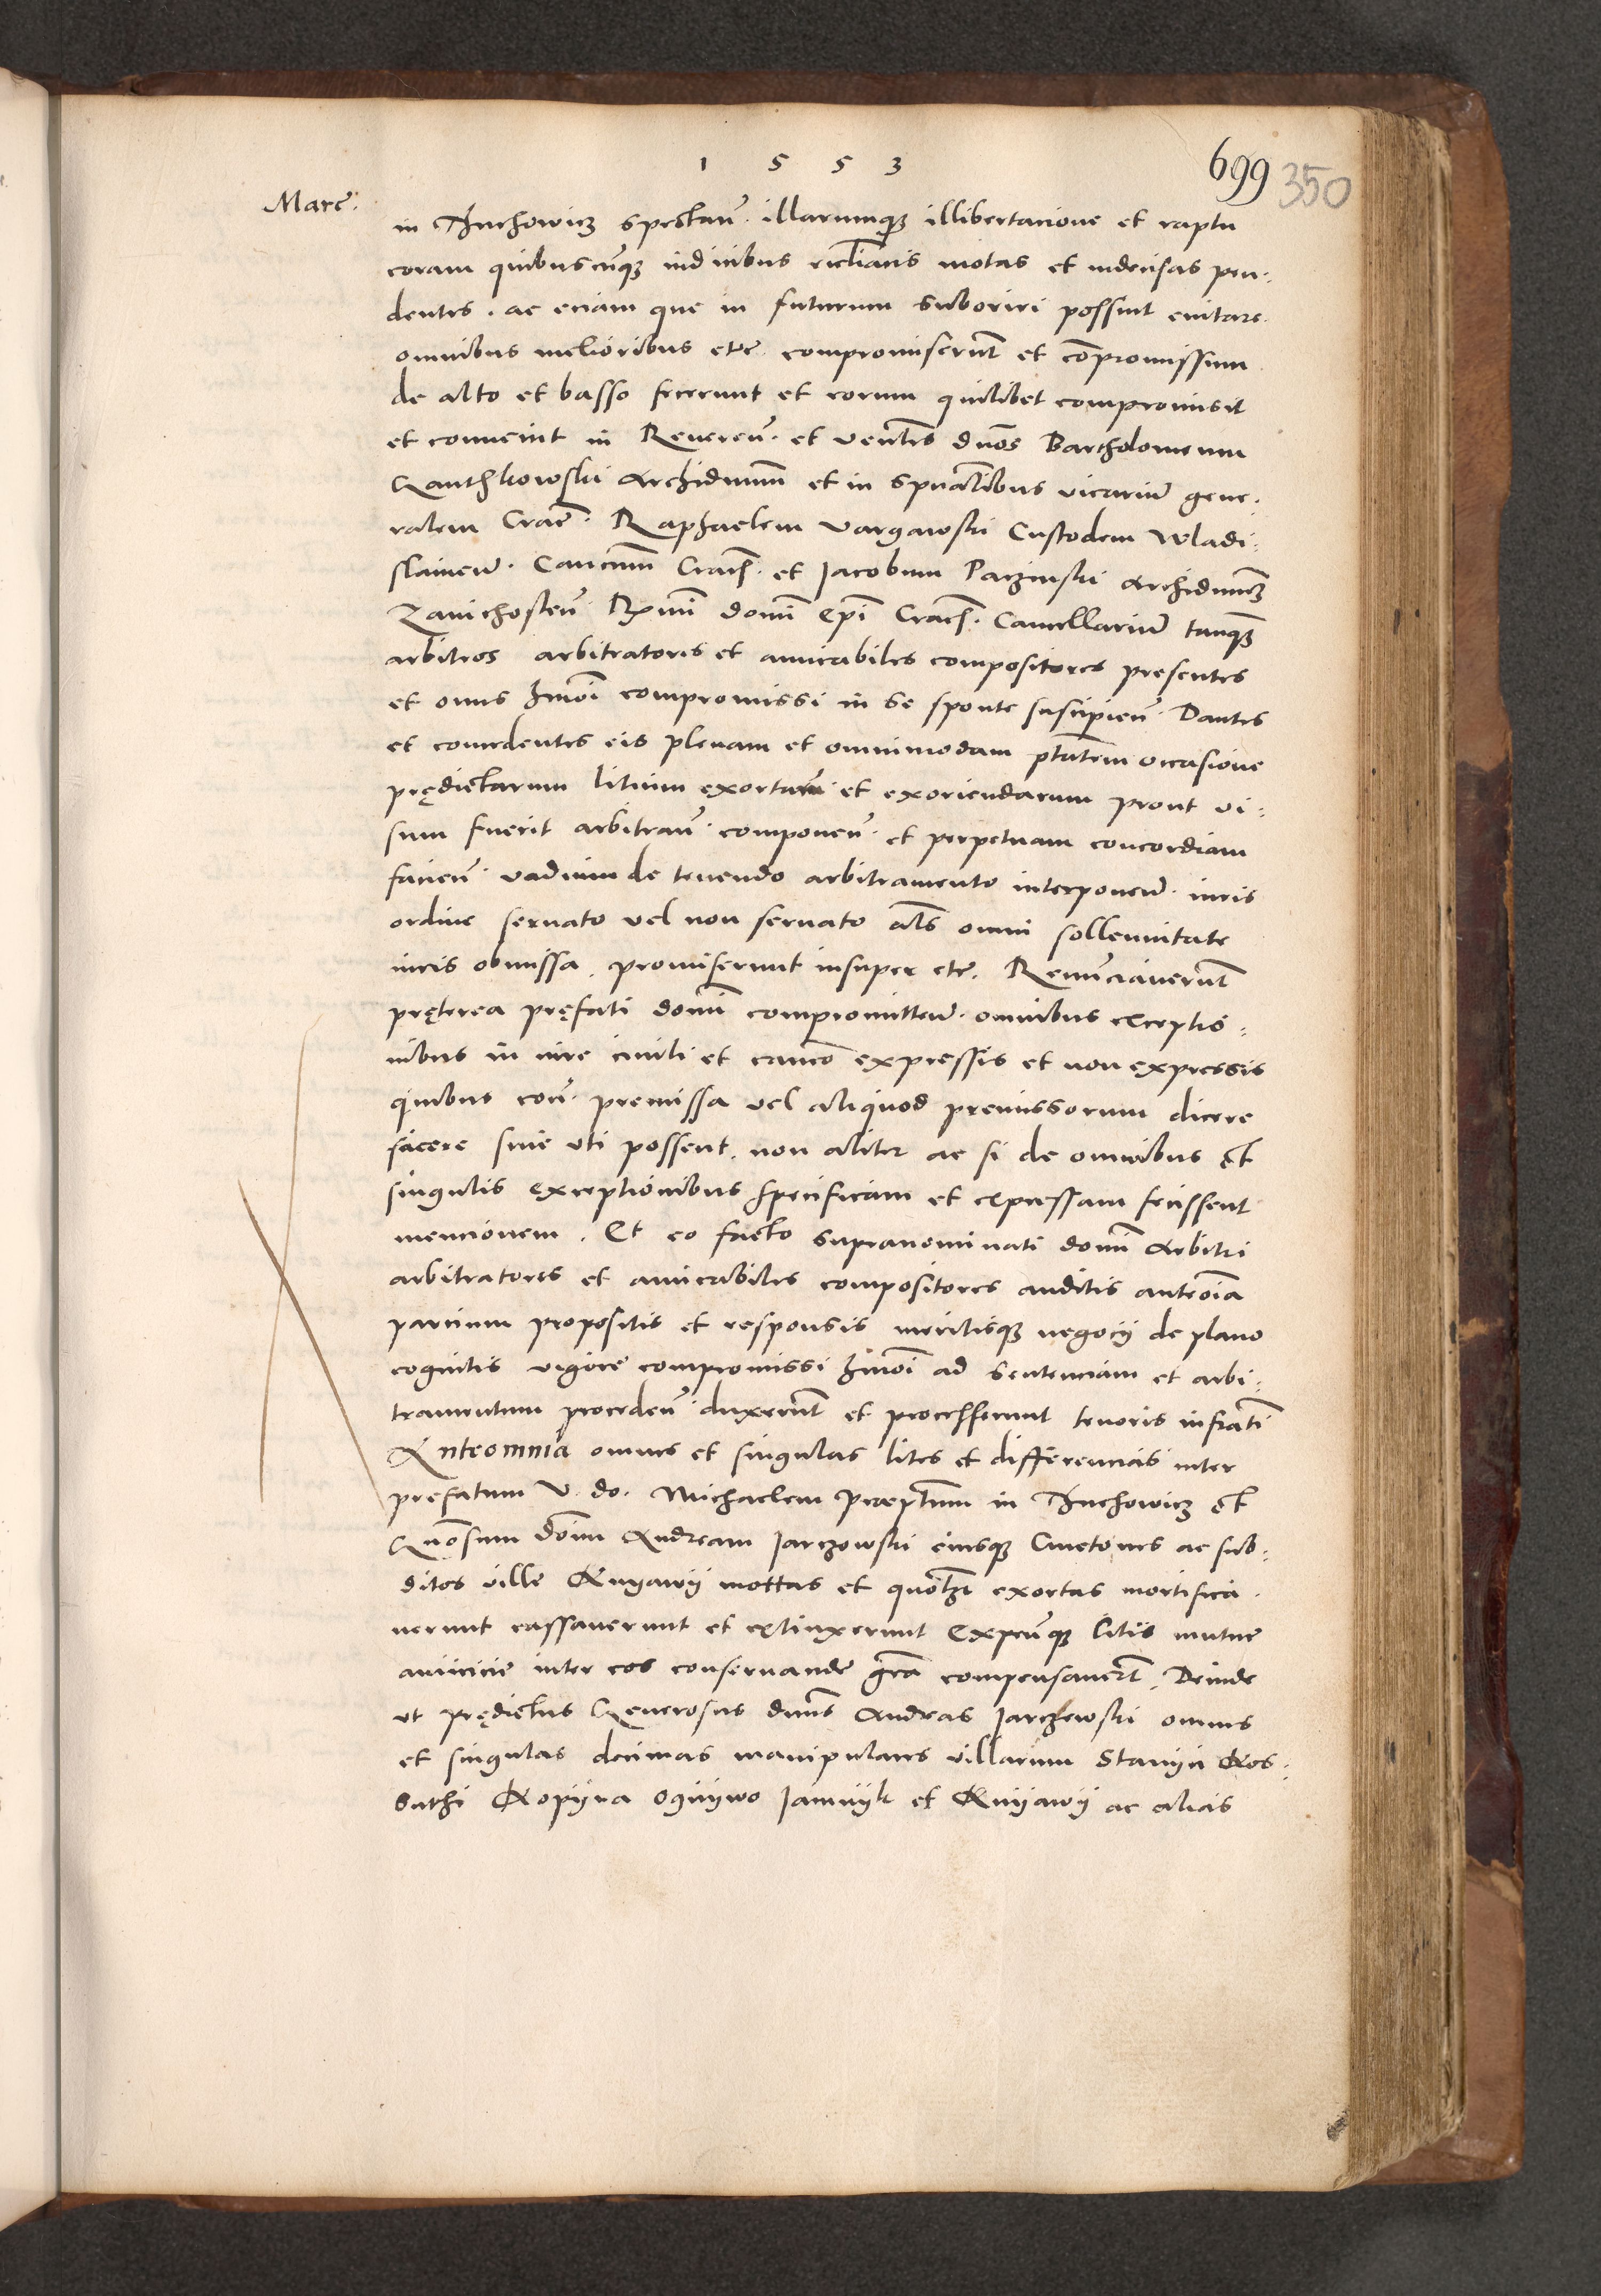 1 5 5 3
699 350
Marc.
in Thuchowicz spectan. illarumq3 illibertacione et raptu
coram quibuscunq3 iudicibus ecclīacis motas et indecisas pen-
dentes. ac eciam que in futurum suboriri possint euitare.
omnibus melioribus etc. compromiserunt et cōpromissum
de alto et basso fecerunt et eorum quilibet compromisit
et conuenit in Reueren. et venles dnos Bartholomeum
Ganthkowski Archidnum et in spualibus vicarium gene-
ralem Crac. Raphaelem Vargawski Custodem Wladi-
slauien. Canicum Cracn. et Jacobum Paczinski Archidnum
Zauichosten. Rmi domi Epi Cracn. Cancellarium tanq3
arbitros arbitratores et amicabiles compositores presentes
et onus hmoi compromissi in se sponte suscipien. Dantes
et concedentes eis plenam et omnimodam ptatem occasione
prędictarum litium exortarum et exoriendarum prout vi-
sum fuerit arbitran. componen. et perpetuam concordiam
facien. vadium de tenendo arbitramento interponen. iuris
ordine seruato vel non seruato als omni sollennitate
iuris obmissa. promiserunt insuper etc. Renunciauerunt
pręterea pręfati domi compromitten. omnibus exceptio-
nibus in iure ciuili et canco expressis et non expressis
quibus con. premissa vel aliquod premissorum dicere
facere siue vti possent. non aliter ac si de omnibus et
singulis exceptionibus specificam et expressam fecissent
mencionem. Et eo facto supranominati domi Arbitri
arbitratores et amicabiles compositores auditis anteoia
parcium propositis et responsis meritisq3 negocij de plano
cognitis vigore compromissi hmoi ad sentenciam et arbi-
tramentum proceden. duxerunt et processerunt tenoris infrati
Anteomnia omnes et singulas lites et differencias inter
prefatum V. do. Michaelem preptum in Thuchowicz et
Gnosum dom Andream Jarczowski eiusq3 Cmetones ac sub-
ditos ville Knyawij mottas et quolz exortas mortifica-
uerunt cassauerunt et extinxerunt Expensq3 litis mutue
amicicie inter eos conseruande gra compensauerunt. Deinde
vt prędictus Generosus dnus Andreas Jarczewski omnes
et singulas decimas manipulares villarum Stanyn Kos-
suthi Kopyna Ognywo Jamnyk et Knyawij ac alias